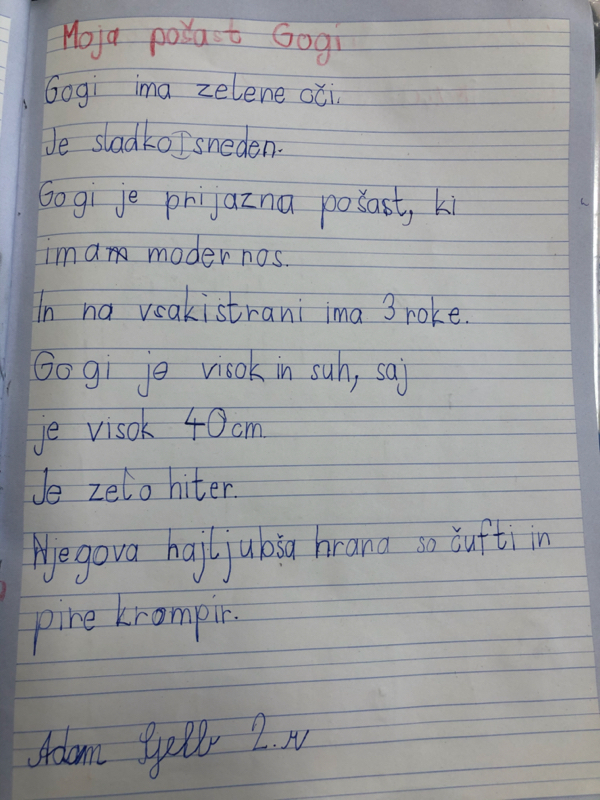 Moja pošast Gogi
Gogi ima zelene oči.
Je sladko sneden.
Gogi je prijazna pošast, ki
imam moder nos.
In na vsaki strani ima 3 roke.
Gogi je visok in suh, saj
je visok 40 cm.
Je zelo hiter.
Njegova najljubša hrana so čufti in
pire krompir.
Adam 2. r